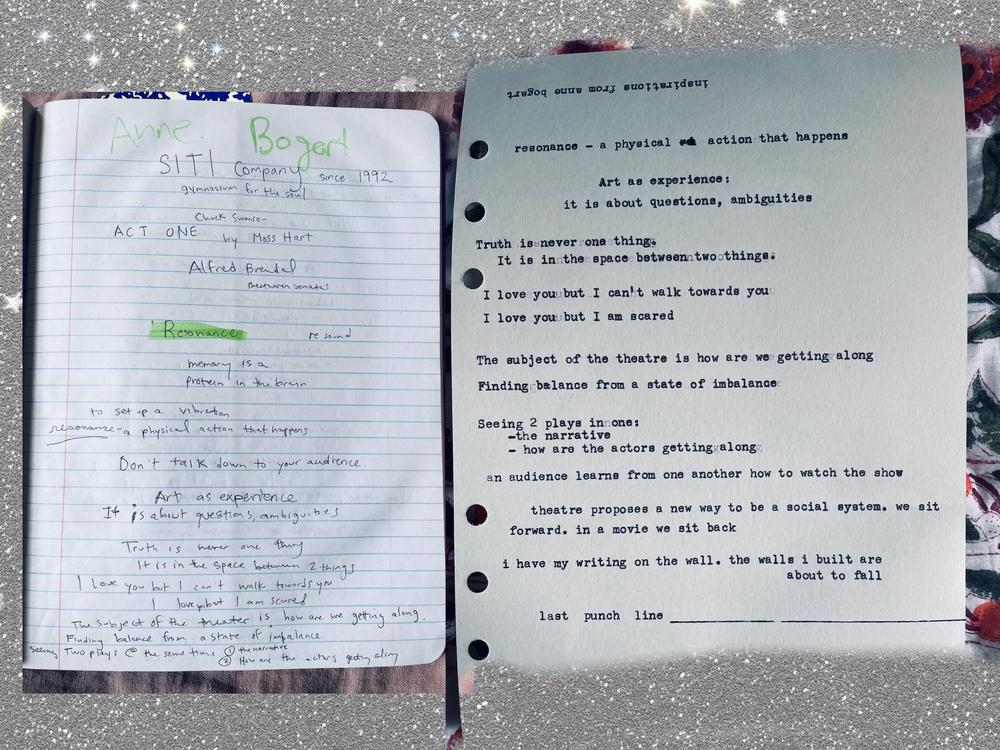 Anne Bogart
SITI Company since 1992
gymnasium for the soul
Chuck
ACT ONE by Moss Hart
Alfred Brendal
Beethoven sonatas
Resonance re sound
memory is a
protein in the brain
to set up a vibration
resonance - a physical action that happens
Don't talk down to your audience.
Art as experience
It is about questions, ambiguities
Truth is never one thing
It is in the space between 2 things
I love you but I can't walk towards you
I love you but I am scared
The subject of the theater is how are we getting along.
Finding balance from a state of imbalance.
seeing Two plays @ the same time ① the narrative
② How are the actors getting along
inspirations from anne bogart
resonance - a physical action that happens
Art as experience:
it is about questions, ambiguities
Truth is never one thing.
It is in the space between two things.
I love you but I can't walk towards you
I love you but I am scared
The subject of the theatre is how are we getting along
Finding balance from a state of imbalance
Seeing 2 plays in one:
-the narrative
- how are the actors getting along
an audience learns from one another how to watch the show
theatre proposes a new way to be a social system. we sit
forward. in a movie we sit back
i have my writing on the wall. the walls i built are
about to fall
last punch line